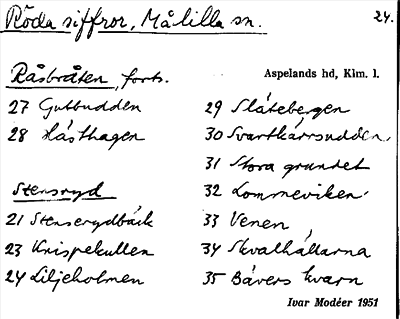 Röda siffror, Målilla sn.
24.
Råsbråten, forts.
Aspelands hd, Klm. l.
27 Gutbudden
28 Hästhagen
Stensryd
21 Stenserydbäck
23 Krispekullen
24 Liljeholmen
29 Slätebergen
30 Svartkärrsudden
31 Stora grundet
32 Lommeviken
33 Venen
34 Skvalhällarna
35 Bävers kvarn
Ivar Modéer 1951